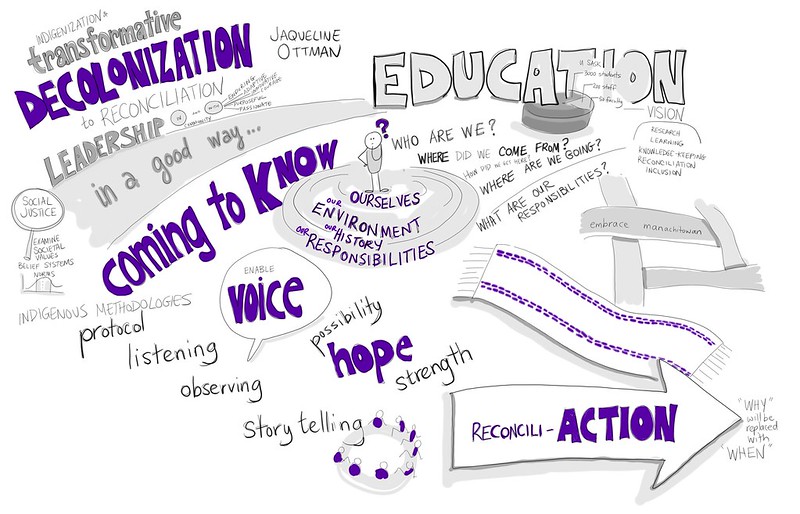 INDIGENIZATION &
transformative
DECOLONIZATION
to RECONCILIATION
JAQUELINE
OTTMAN
LEADERSHIP
IN
COMMUNITY
AND
WITH
PURPOSEFUL
PASSIONATE
COURAGE
in a good way...
EDUCATION
U SASK
3000 students
VISION
RESEARCH
LEARNING
KNOWLEDGE-KEEPING
RECONCILIATION
INCLUSION
coming to KNOW
?
OURSELVES
OUR ENVIRONMENT
OUR HISTORY
OUR RESPONSIBILITIES
WHO ARE WE?
WHERE DID WE COME FROM?
HOW DID WE GET HERE?
WHERE ARE WE BEING?
WHAT ARE OUR
RESPONSIBLITIES?
embrace manachitowan
SOCIAL
JUSTICE
EXAMINE
SOCIETAL
VALUES
BELIEF SYSTEMS
NORMS
INDIGENOUS METHODOLOGIES
protocol
listening
observing
story telling
ENABLE
VOICE
possibility
hope
strength
RECONCILI-ACTION
"WHY"
will be
replaced
with
"WHEN"